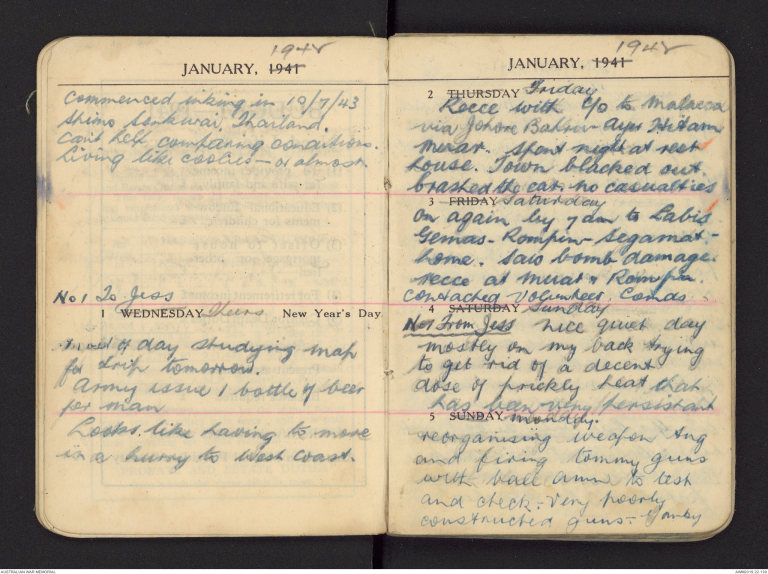 1942
JANUARY, 1941
Commenced inking in 10/7/43
Shimo Sonkurai, Thailand.
Can't help comparing conditions.
Living like coolies – or almost
No 1 To Jess
1 WEDNESDAY Thurs New Year's Day
of day studying map
for trip tomorrow.
Army issue 1 bottle of beer
per man
Looks like having to move
in a hurry to West Coast.
1942
JANUARY, 1941
2 THURSDAY Friday
Recce with C/O to Malacca
via Johore Bahru – Ayer Hitam
Muar. Spent night at rest
house. Town blacked out
brashed the car, no casualties
3 FRIDAY Saturday
On again by 7 am to Labis
Gemas – Rompin – Segamat –
home. Saw bomb damage
recce at Muar & Rompin.
Contacted Volunteer. Comds.
4 SATURDAY Sunday
No 1 From Jess nice quiet day
mostly on my back trying
to get rid of a decent
dose of prickly heat that
has been very persistant
5 SUNDAY Monday.
reorganising weapon tng
and firing tommy guns
with ball amm to test
and check – very poorly
constructed guns –
AUSTRALIAN WAR MEMORIAL